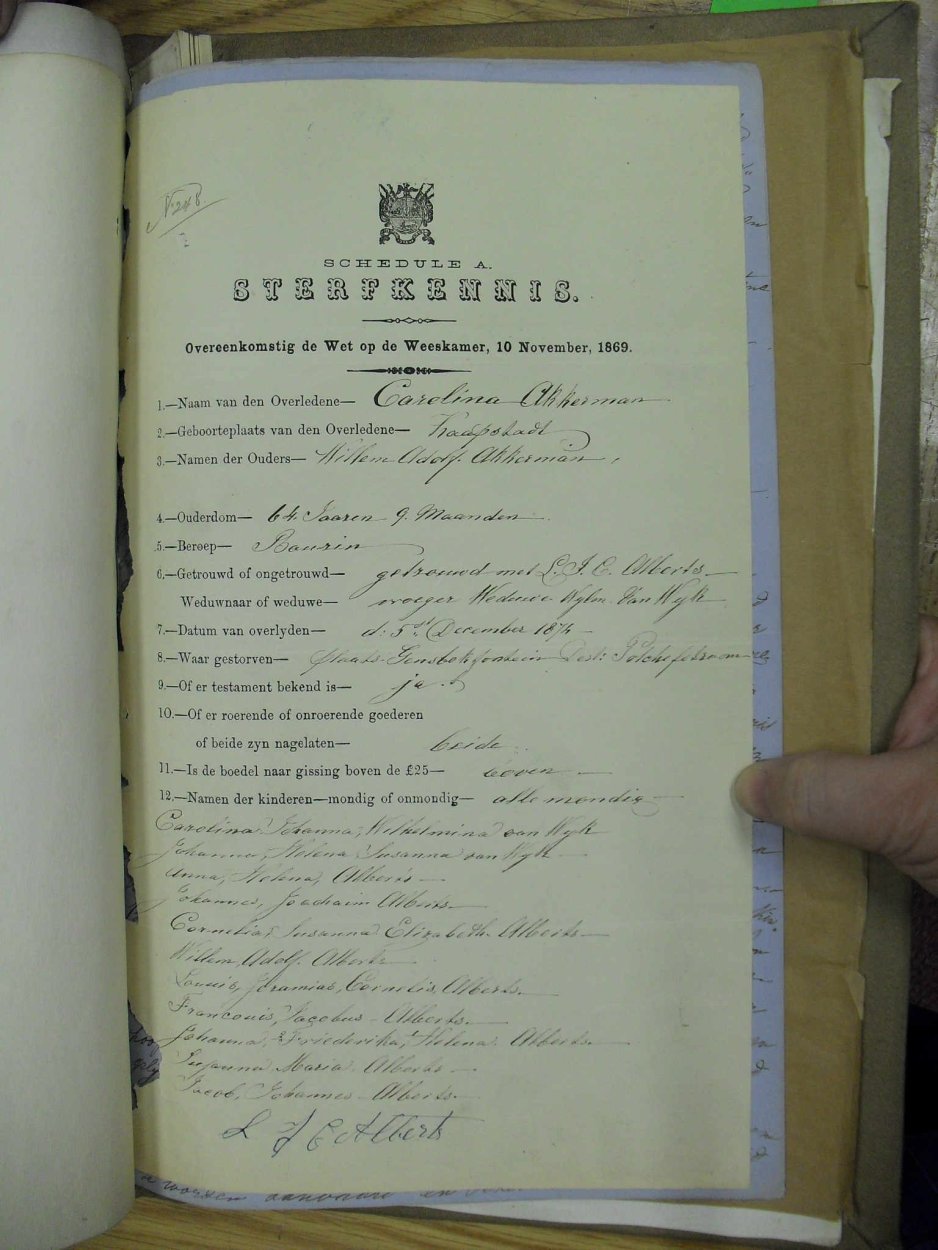 N: 248
SCHEDULE A.
STERFKENNIS.
Overeenkomstig de Wet op de Weeskamer, 10 November, 1869.
1.—Naam van den Overledene— Carolina Akkerman
2.—Geboorteplaats van den Overledene— Kaapstadt
3.—Namen der Ouders— Willem Adolf Akkerman
4.—Ouderdom— 64 Jaaren 9. Maanden
5.—Beroep— Bourin
6.—Getrouwd of ongetrouwd— getrouwd met L. J. C. Alberts
Weduwnaar of weduwe— vroeger Weduwe Wylm. Van Wyk
7.—Datum van overlyden— d: 5de December 1875
8.—Waar gestorven— plaats Gensbokfontein Dest: Potchefstroom
9.—Of er testament bekend is— ja
10.—Of er roerende of onroerende goederen
of beide zyn nagelaten— beide
11.—Is de boedel naar gissing boven de £25— boven
12.—Namen der kinderen—mondig of onmondig— alle mondig
Carolina, Johanna, Wilhelmina van Wyk
Johanna, Helena Susanna van Wyk
Anna, Helena, Alberts
Johannes, Joachim Alberts
Cornelia, Susanna Elizabeth Alberts
Willem, Adolf Alberts
Louuis, Jeramias, Cornelis Alberts.
Francouis, Jacobus Alberts.
Johanna, Friederika, Helena Alberts.
Susanna Maria Alberts
Jacob, Johannes Alberts.
L J C Alberts
worden aanvaard en